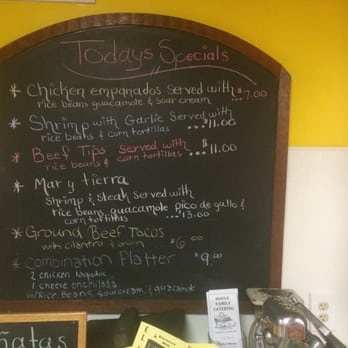 Todays Specials
* Chicken empanados Served with
rice beans guacamole & sour cream ...$7.00
* Shrimp with Garlic Served with
rice beans & corn tortillas ...$11.00
* Beef Tips served with
rice beans & corn tortillas ...$11.00
* Mar y tierra
Shrimp & Steak Served with
rice beans, guacamole pico de gallo &
corn tortillas ...$13.00
* Ground Beef Tacos
with cilantro & onion ...$6.00
* Combination Platter $9.00
2 chicken taquitos
1 cheese enchilada
w/ Rice Beans sourcream / guacamole
ñatas
FAMILY
CATERING